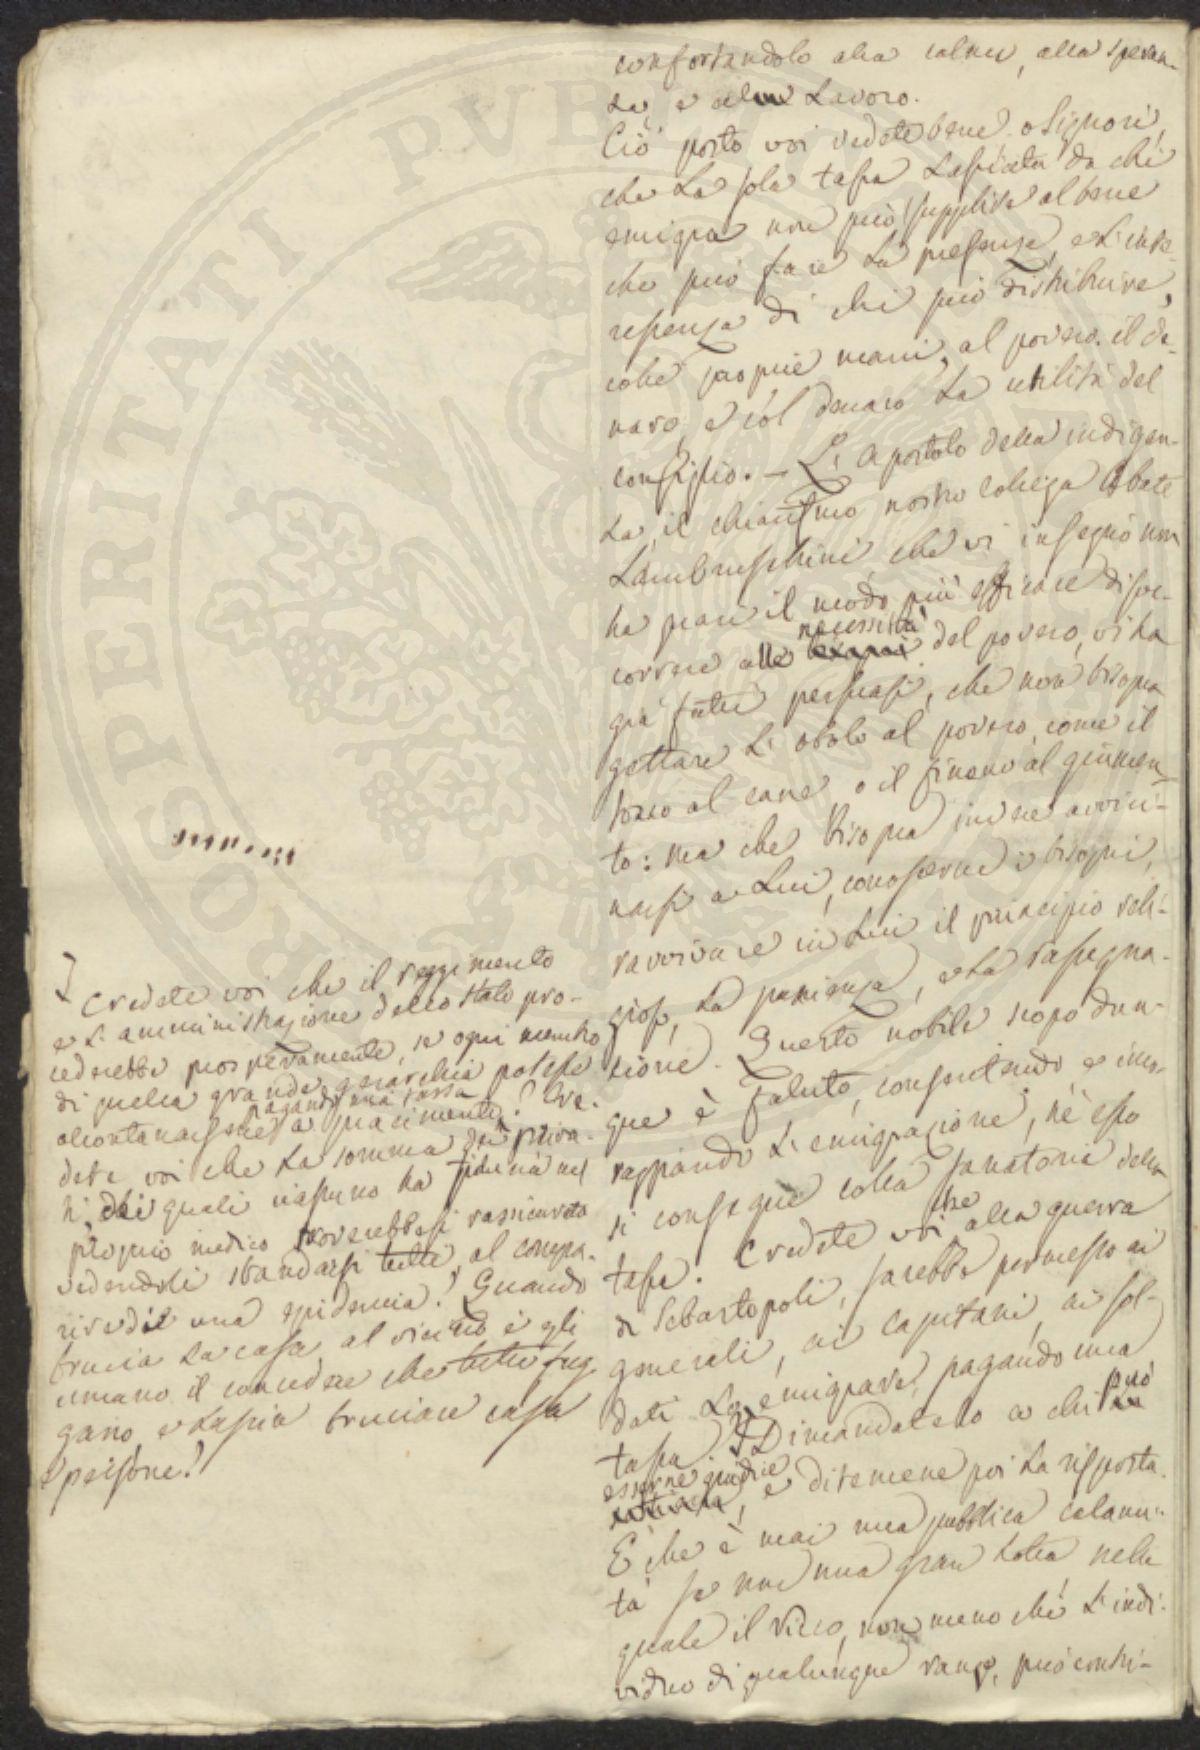 confortandolo alla calma, alla speran-
za, e al lavoro.
Ciò posto voi vedete bene o Signori,
che la sola tassa lasciata da chi
emigra non può supplire al bene
che può fare la presenza, e l'inte-
ressenza di chi può distribuire,
colle proprie mani, al povero il da-
naro, e col denaro la utilità del
consiglio. — L'Apostolo della indigen-
za, il chiarissmo nostro collega Abate
Lambruschini, che vi insegnò non
ha guari il modo più efficace di soc-
correre alle necessità del povero, vi ha
già tutti persuasi, che non bisogna
gettare l'obolo al povero, come il
tozzo al cane, o il fieno al giumen-
to: ma che bisogna invece avvici-
narsi a lui, conoscerne i bisogni,
ravvivare in lui il principio reli-
gioso, la pazienza, e la rassegna-
zione. Questo nobile scopo dun-
que è fallito, consentendo e inco-
raggiando l'emigrazione, nè esso
si consegue colla sanatoria della
tassa. Credete voi che alla guerra
di Sebastopoli, sarebbe permesso ai
generali, ai capitani, ai sol-
dati emigrare, pagando una
tassa? Dimandatelo a chi può
esserne giudice, e ditemene poi la risposta.
E che è mai una pubblica calami-
tà se non una gran lotta nella
quale il ricco, non meno che l'indi-
viduo di qualunque rango, può contri-
Credete voi che il reggimento
e l'amministrazione dello Stato pro-
cederebbe prosperamente, se ogni membro
di quella grande gerarchia potesse
allontanarsene a piacimento pagando una tassa? Cre-
dete voi che la somma dei priva-
ti, dei quali niassuno ha fiducia nel
proprio medico troverebbesi rassicurata
vedendoli sbandarsi tutti, al compa-
rire di una epidemia? Quando
brucia la casa al vicino è egli
umano il concedere che tutti fug-
gano, e lascin bruciare casa
e persone?